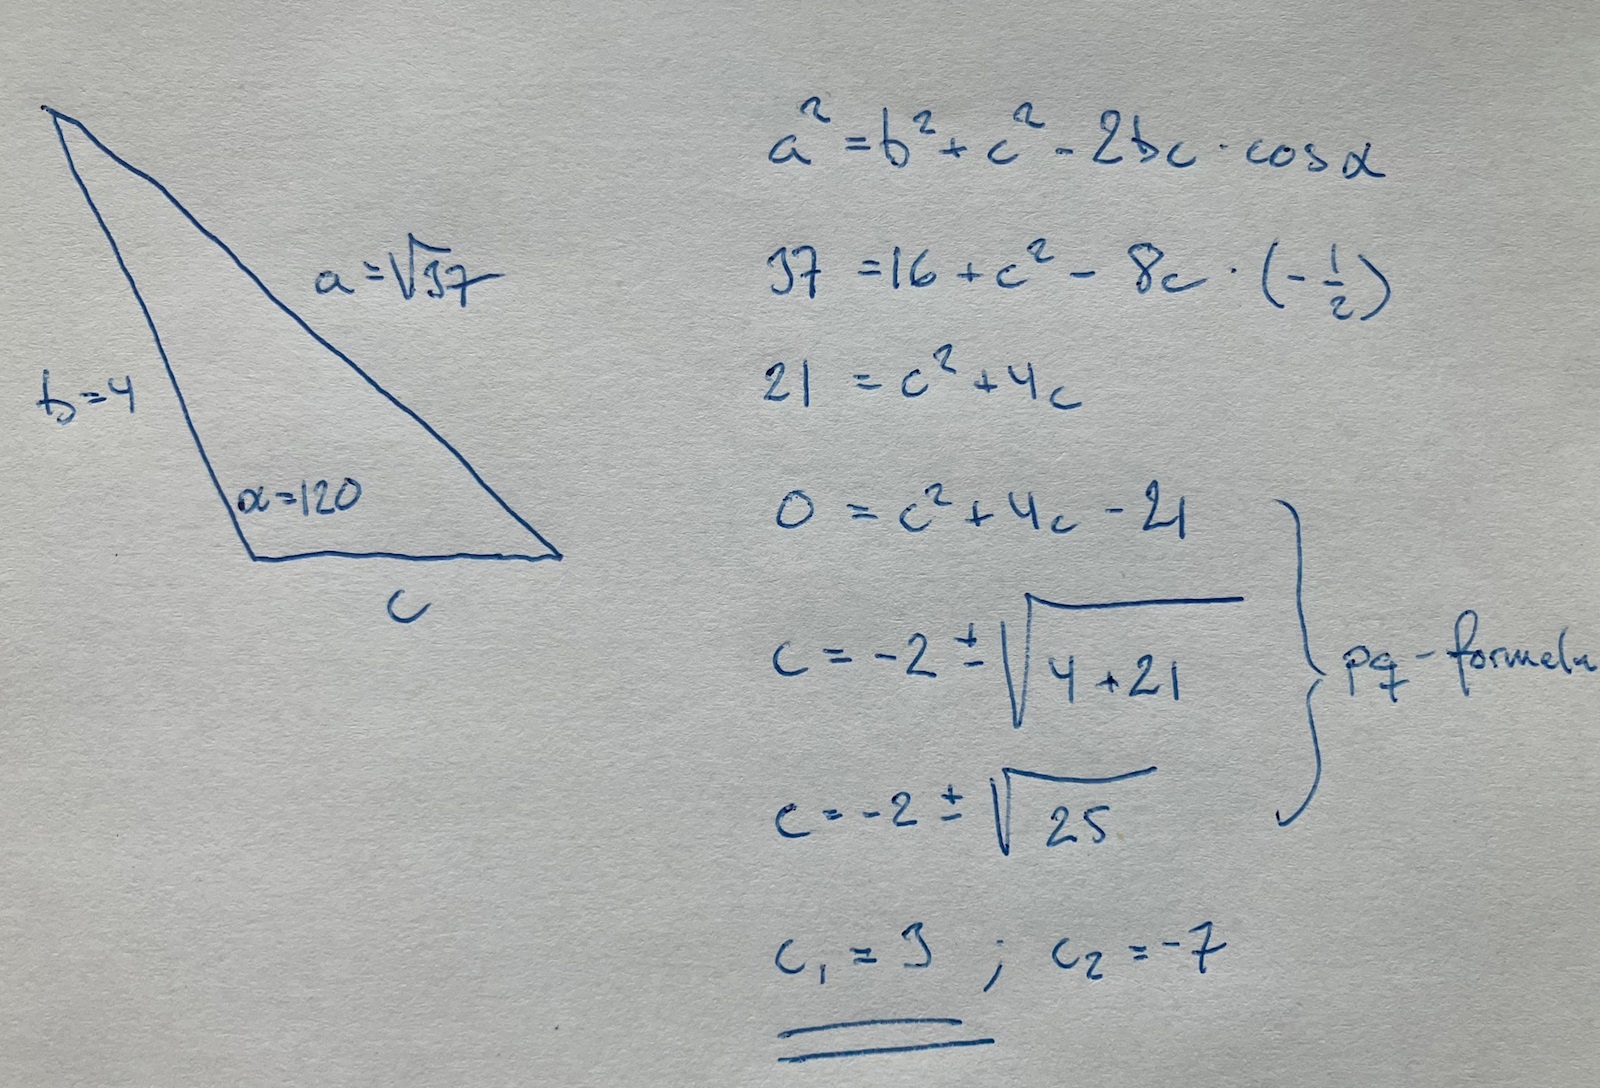 a = √37
b = 4
α = 120
c
a² = b² + c² - 2bc · cos α
37 = 16 + c² - 8c · (-1/2)
21 = c² + 4c
0 = c² + 4c - 21
c = -2 ± √(4 + 21)
pq-formeln
c = -2 ± √25
c₁ = 3 ; c₂ = -7